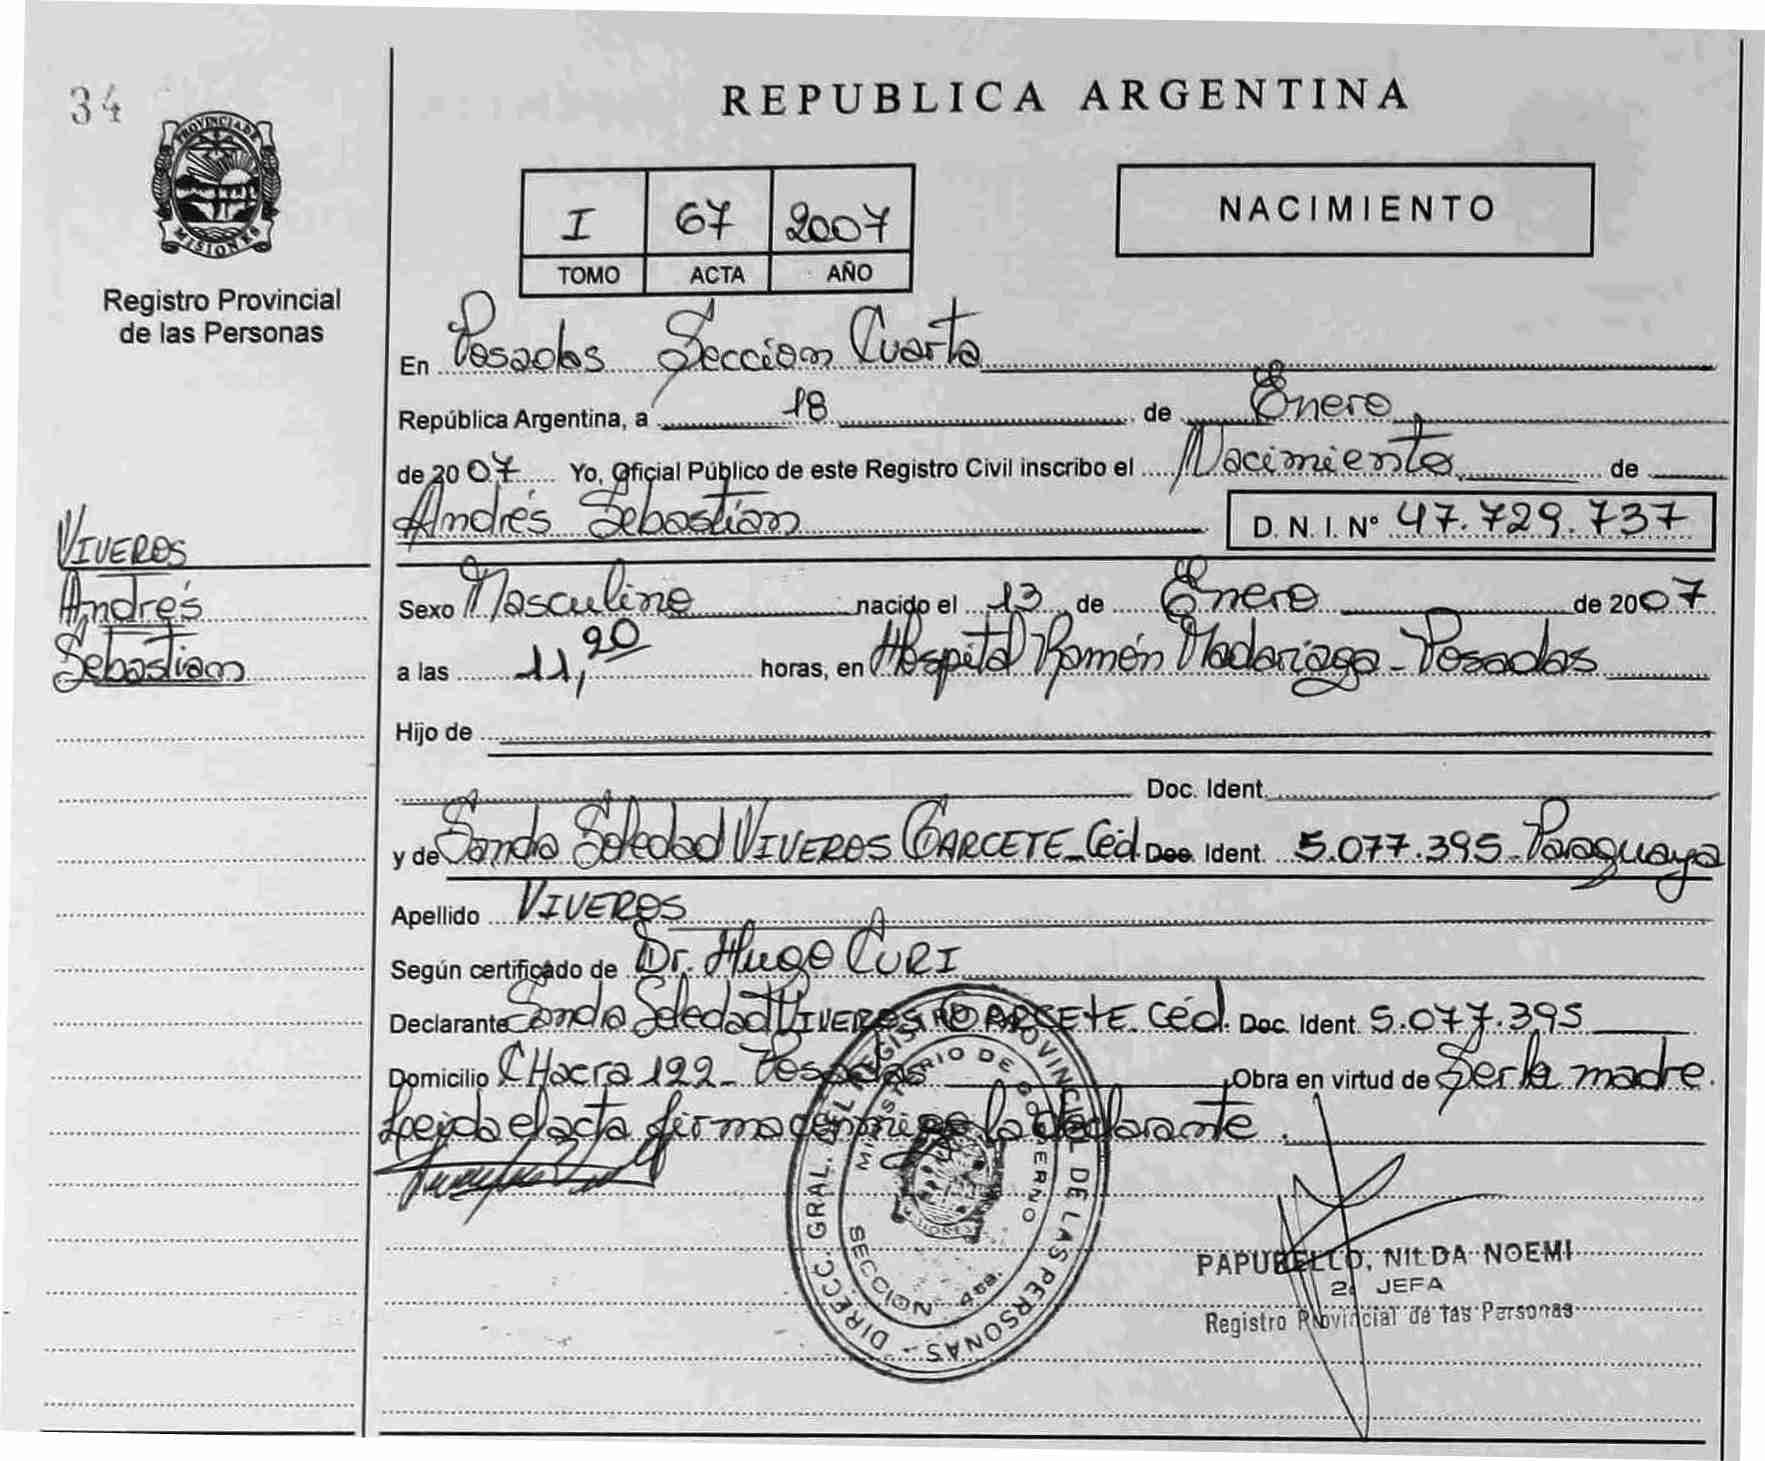 34
PROVINCIA DE
MISIONES
Registro Provincial
de las Personas
VIVEROS
Andrés
Sebastian
REPUBLICA ARGENTINA
I 67 2007
TOMO ACTA AÑO
NACIMIENTO
En Posadas Seccion Cuarta
República Argentina, a 18 de Enero
de 2007 Yo, Oficial Público de este Registro Civil inscribo el Nacimiento de
Andrés Sebastian D. N. I. N° 47.729.737
Sexo Masculino nacido el 13 de Enero de 2007
a las 11,20 horas, en Hospital Ramón Madariaga - Posadas
Hijo de
Doc. Ident.
y de Sandra Soledad VIVEROS GARCETE - Céd. Doc. Ident. 5.077.395 - Paraguaya
Apellido VIVEROS
Según certificado de Dr. Hugo CURI
Declarante Sandra Soledad VIVEROS GARCETE Céd. Doc. Ident. 5.077.395
Domicilio CHacra 122 - Posadas Obra en virtud de Ser la madre.
Leida el acta firma conmigo la declarante.
DIRECC. GRAL. DEL REGISTRO PROVINCIAL DE LAS PERSONAS -
MINISTERIO DE GOBIERNO
SECCION 4ta.
PAPURELLO, NILDA NOEMI
2a JEFA
Registro Provincial de las Personas